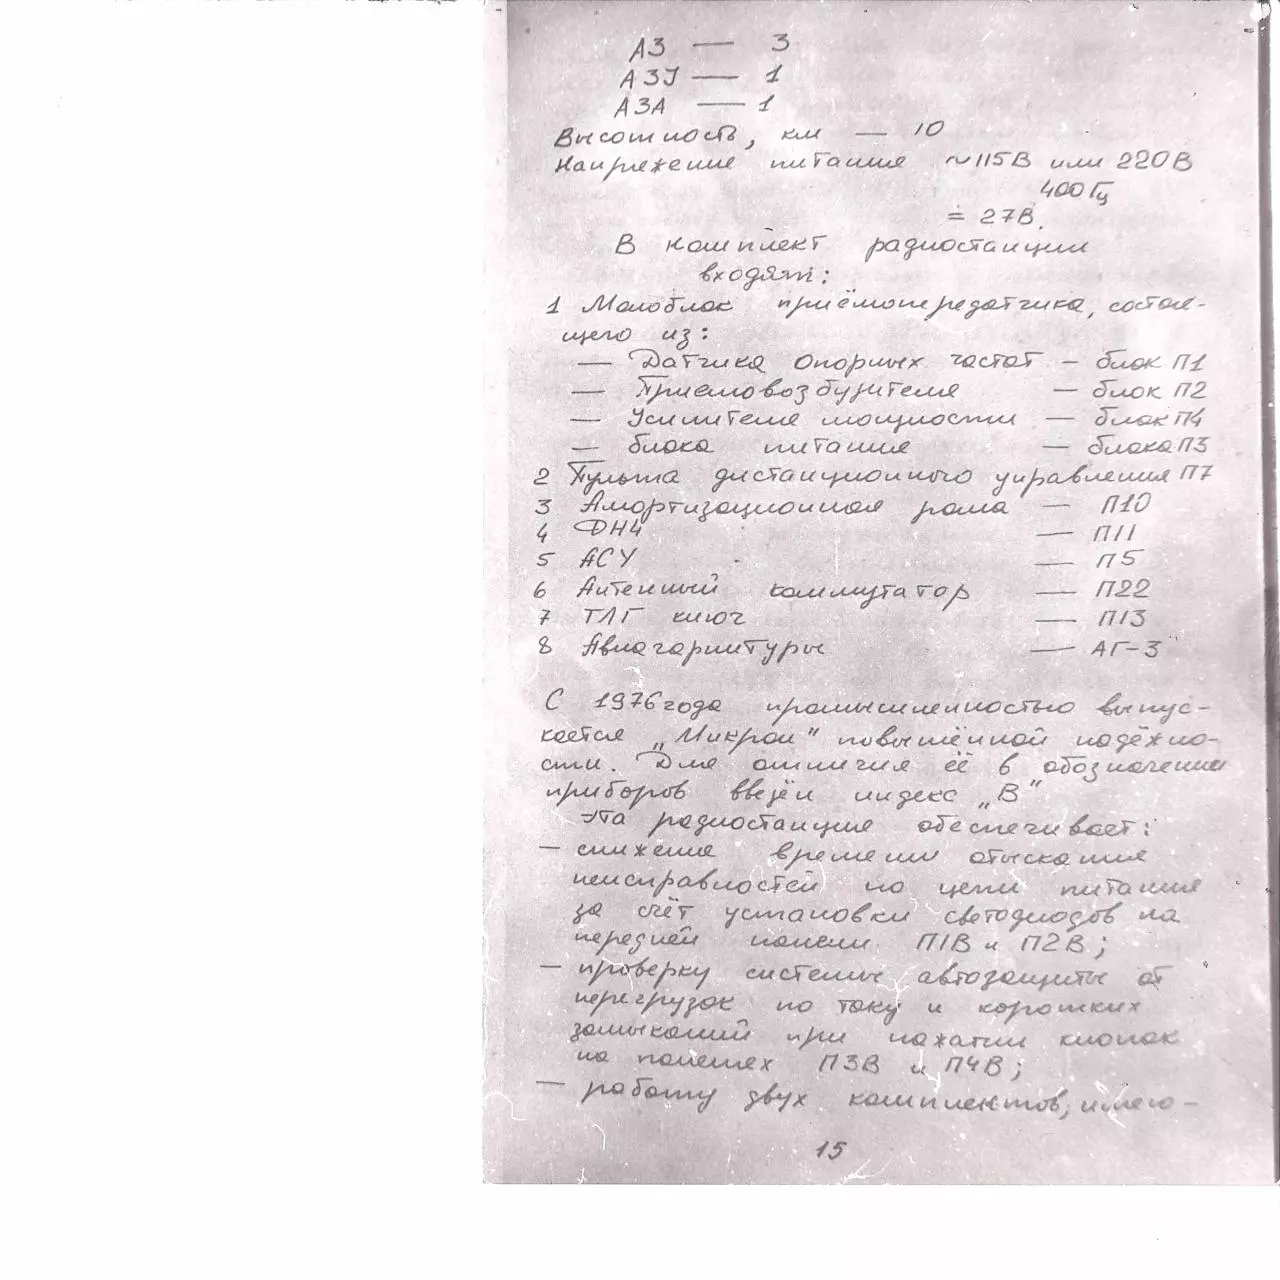 А3 — 3
А3J — 1
А3А — 1
Высотность, км — 10
Напряжение питания ~115В или 220В
400Гц
= 27В.
В комплект радиостанции
входят:
1 Моноблок приёмопередатчика, состоя-
щего из:
— Датчика опорных частот — блок П1
— Приемовозбудителя — блок П2
— Усилителя мощности — блок П4
— блока питания — блока П3
2 Пульта дистанционного управления П7
3 Амортизационная рама — П10
4 ФНЧ — П11
5 АСУ — П5
6 Антенный коммутатор — П22
7 ТЛГ ключ — П13
8 Авиагарнитуры — АГ-3
С 1976 года промышленностью выпус-
кается „Микрон" повышенной надёжно-
сти. Для отличия её в обозначении
приборов введён индекс „В"
Эта радиостанция обеспечивает:
— снижения времени отыскания
неисправностей по цепи питания
за счёт установки светодиодов на
передней панели П1В и П2В;
— проверку системы автозащиты от
перегрузок по току и коротких
замыканий при нажатии кнопок
на панелях П3В и П4В;
— работу двух комплектов, имею-
15